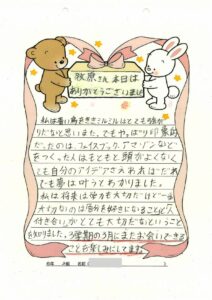 牧原さん本日は
ありがとうございました
私は青い鳥をさきミルミルはとても強か
りだなと思いました。でもやっぱり印象的
だったのは、フェイスブック、アマゾンなどど
をつくった人はもともと頭がよくなく
ても自分のアイデアさえあればだれ
でも夢は叶うとわかりました。
私は将来は学力も大切だけど一番
大切なのは自分を好きになることと人
付き合いがとても大切だなということ
を知りました。3学期の3月にまたお会いできる
ことを楽しみにしてます。